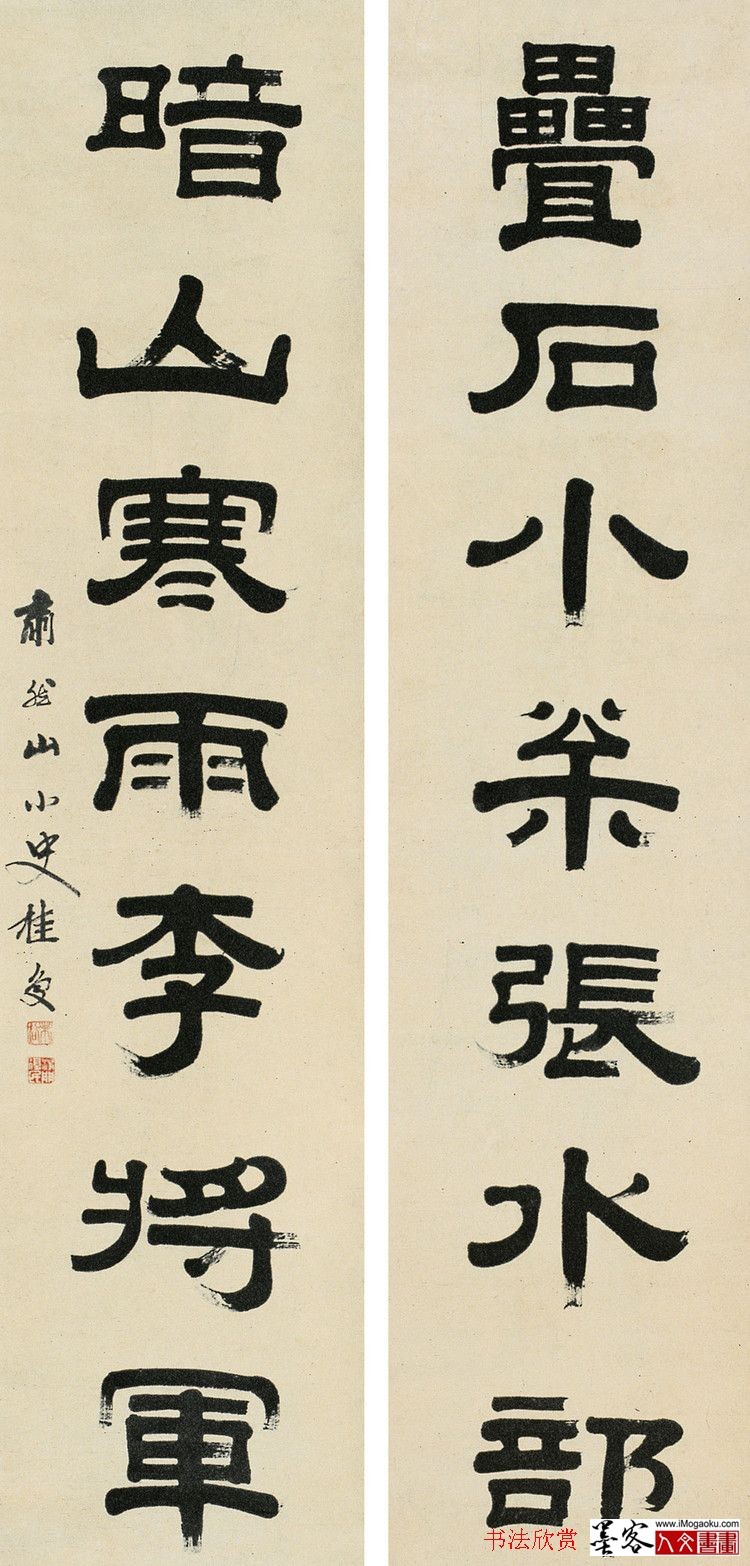 疊石小枀張水部
暗山寒雨李將軍
肅然山小史桂复
书法欣赏
墨客
www.iMogaoku.com
人文書畫